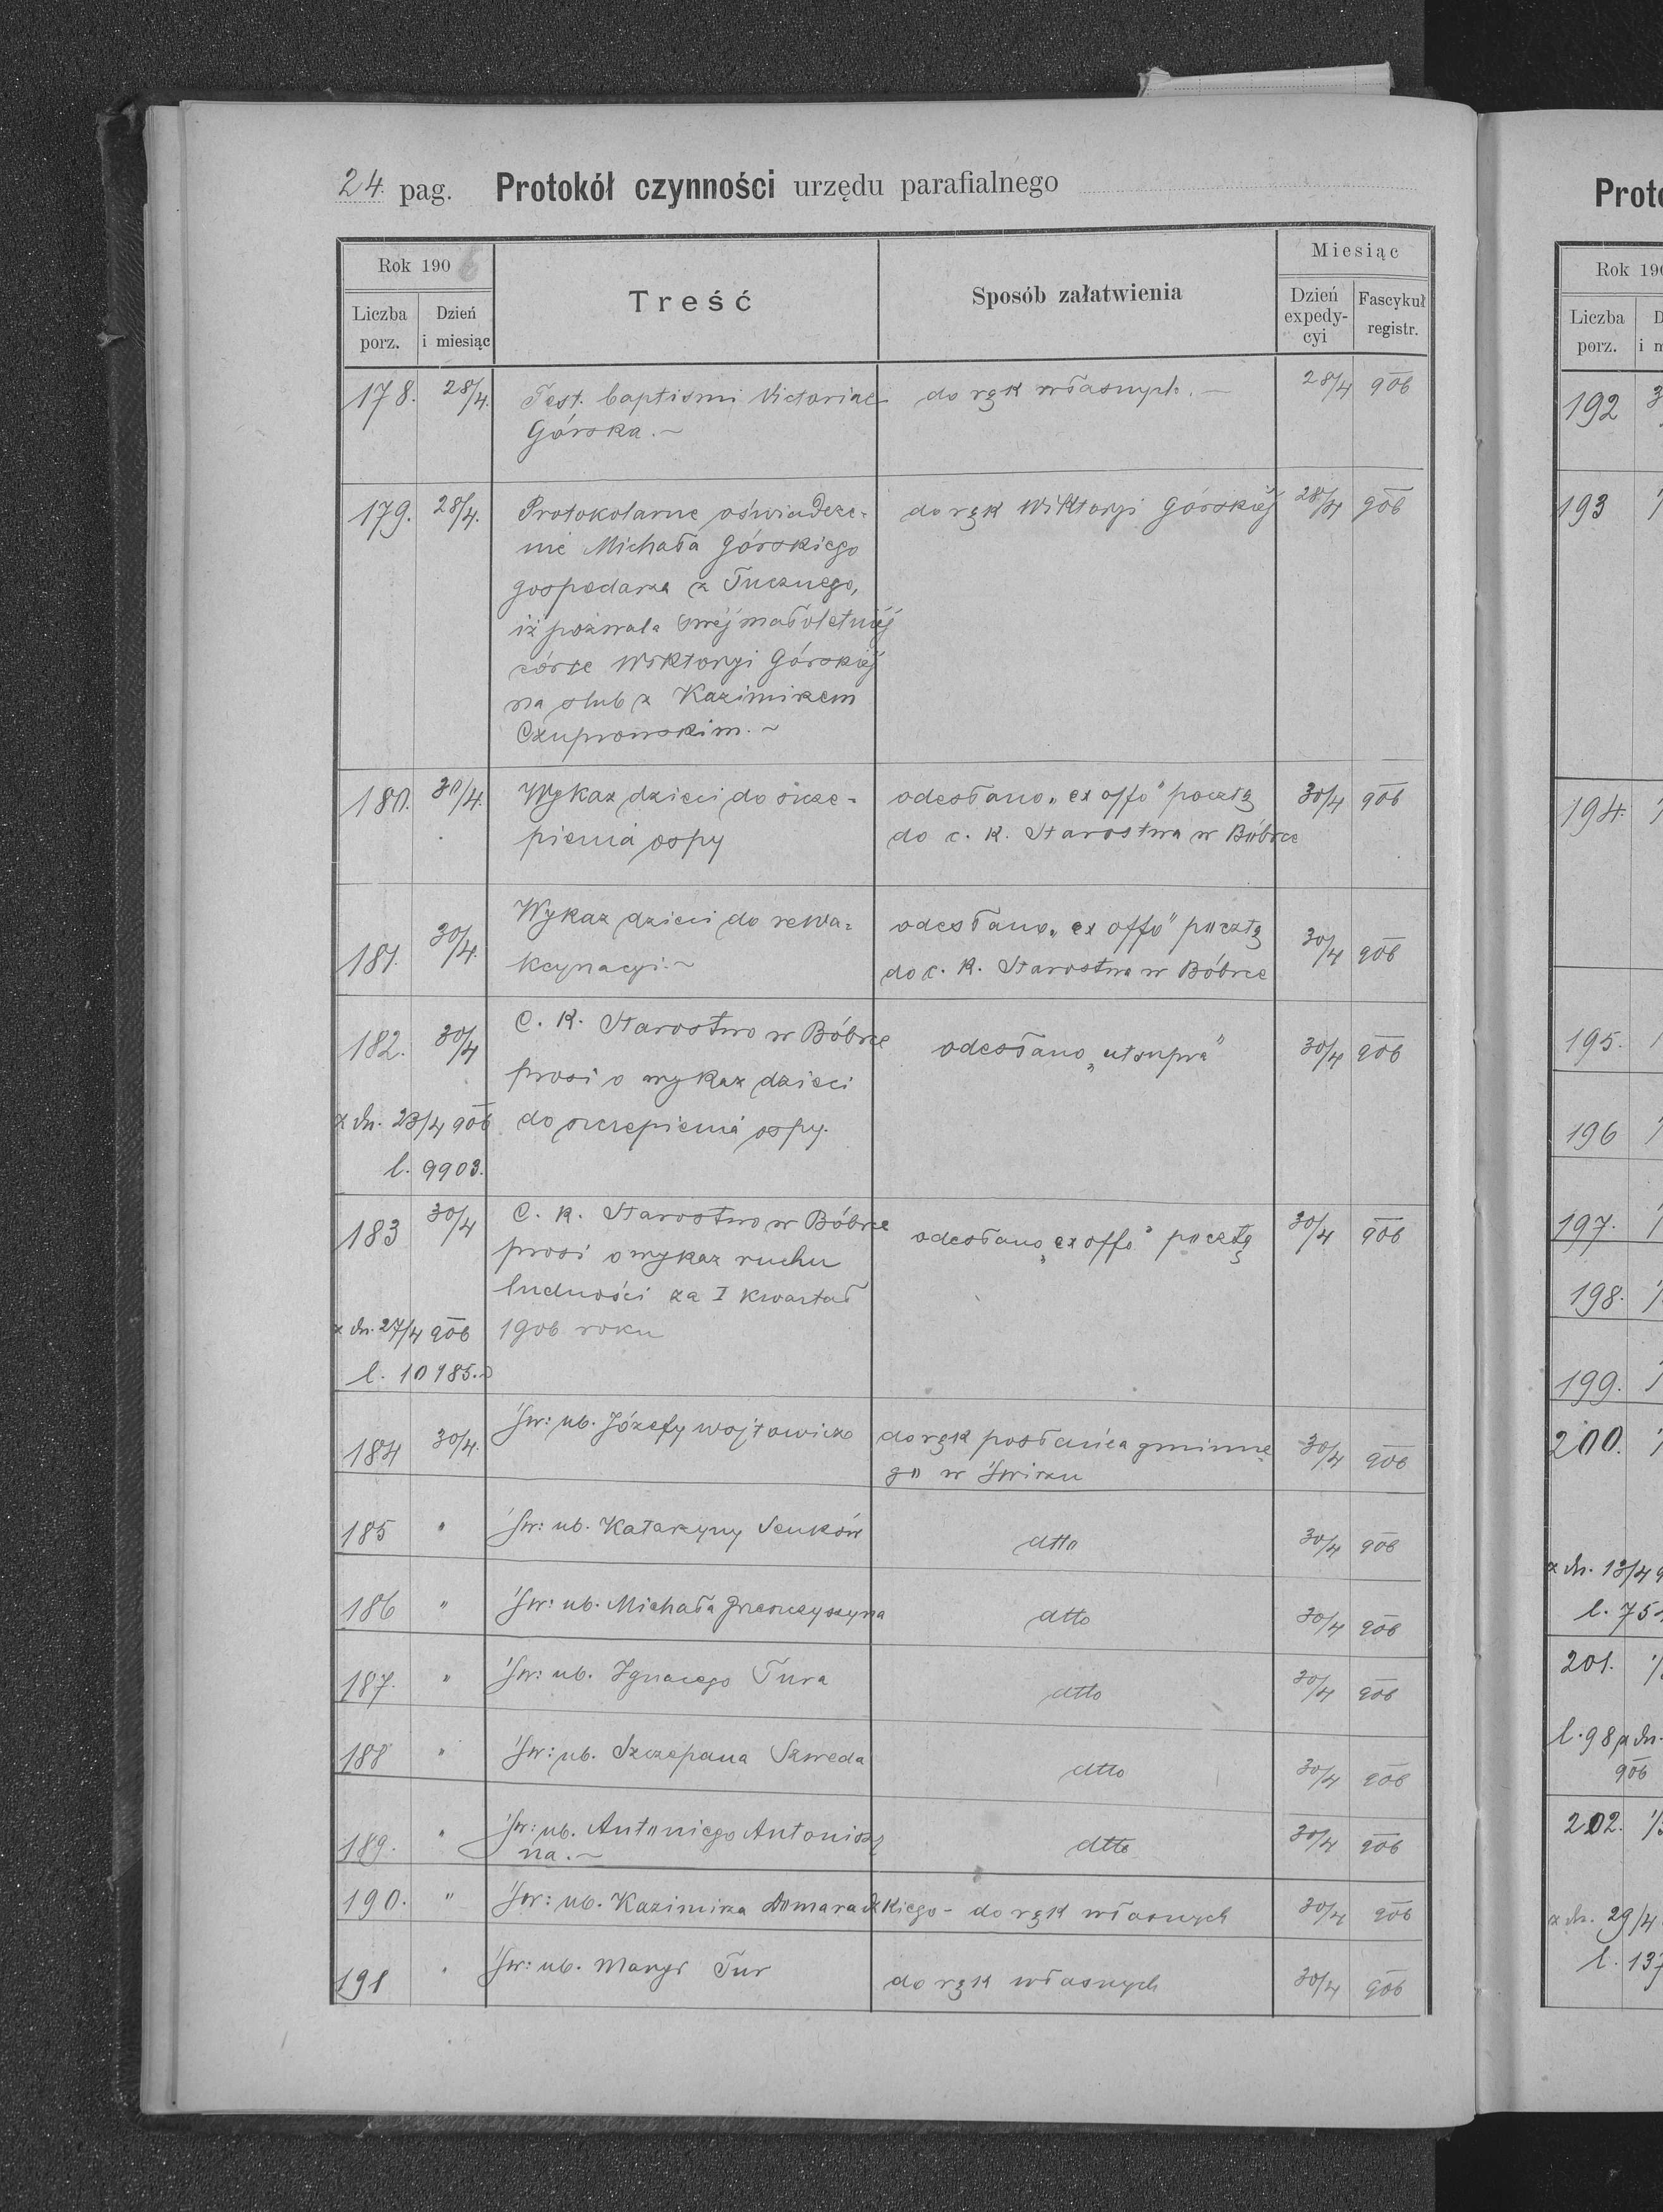 24. pag. Protokół czynności urzędu parafialnego
Rok 1906
Liczba porz.
Dzień i miesiąc
Treść
Sposób załatwienia
Miesiąc
Dzień expedy-cyi
Fascykuł registr.
178. 28/4. Test. baptismi Victoriae do rąk własnych. — 28/4 906
Górska. ~
179. 28/4. Protokolarne oświadcze= do rąk Wiktoryi Górskiéj 28/4 906
nie Michała Górskiego
gospodarza z Tucznego,
iż pozwala swéj małoletniéj
córce Wiktoryi Górskiéj
na slub z Kazimirzem
Czuprowskim. ~
180. 30/4. Wykaz dzieci do szcze= odesłano „ex offo" pocztą 30/4 906
pienia ospy do c. k. Starostwa w Bóbrce
181. 30/4. Wykaz dzieci do rewa= odesłano „ex offo" pocztą 30/4 906
kcynacyi. ~ do c. k. Starostwa w Bóbrce
182. 30/4 C. K. Starostwo w Bóbrce odesłano „ut supra" 30/4 906
prosi o wykaz dzieci
z dn. 23/4 906 do szczepienia ospy.
l. 9903.
183 30/4 C. K. Starostwo w Bóbrce odesłano „ex offo" pocztą 30/4 906
prosi o wykaz ruchu
ludności za I kwartał
z dn. 27/4 906 1906 roku
l. 10985.
184 30/4. Św: ub. Józefy Wojtowicz do rąk posłańca gminne 30/4 906
go w Świrzu
185 " Św: ub. Katarzyny Seńków dtto 30/4 906
186 " Św: ub. Michała dtto 30/4 906
187. " Św: ub. Ignacego Tura dtto 30/4 906
188 " Św: ub. Szczepana Szweda dtto 30/4 906
189. " Św: ub. Antoniego Antonisz dtto 30/4 906
na. ~
190. " Św: ub. Kazimirza Domaradzkiego - do rąk własnych 30/4 906
191 " Św: ub. Maryi Tur do rąk własnych 30/4 906
Proto
Rok 190
Liczba porz.
192
193
194.
195.
196
197.
198.
199.
200.
z dn. 13/4 9
l. 75
201.
l. 98 z dn.
906
202.
z dn. 29/4
l. 137